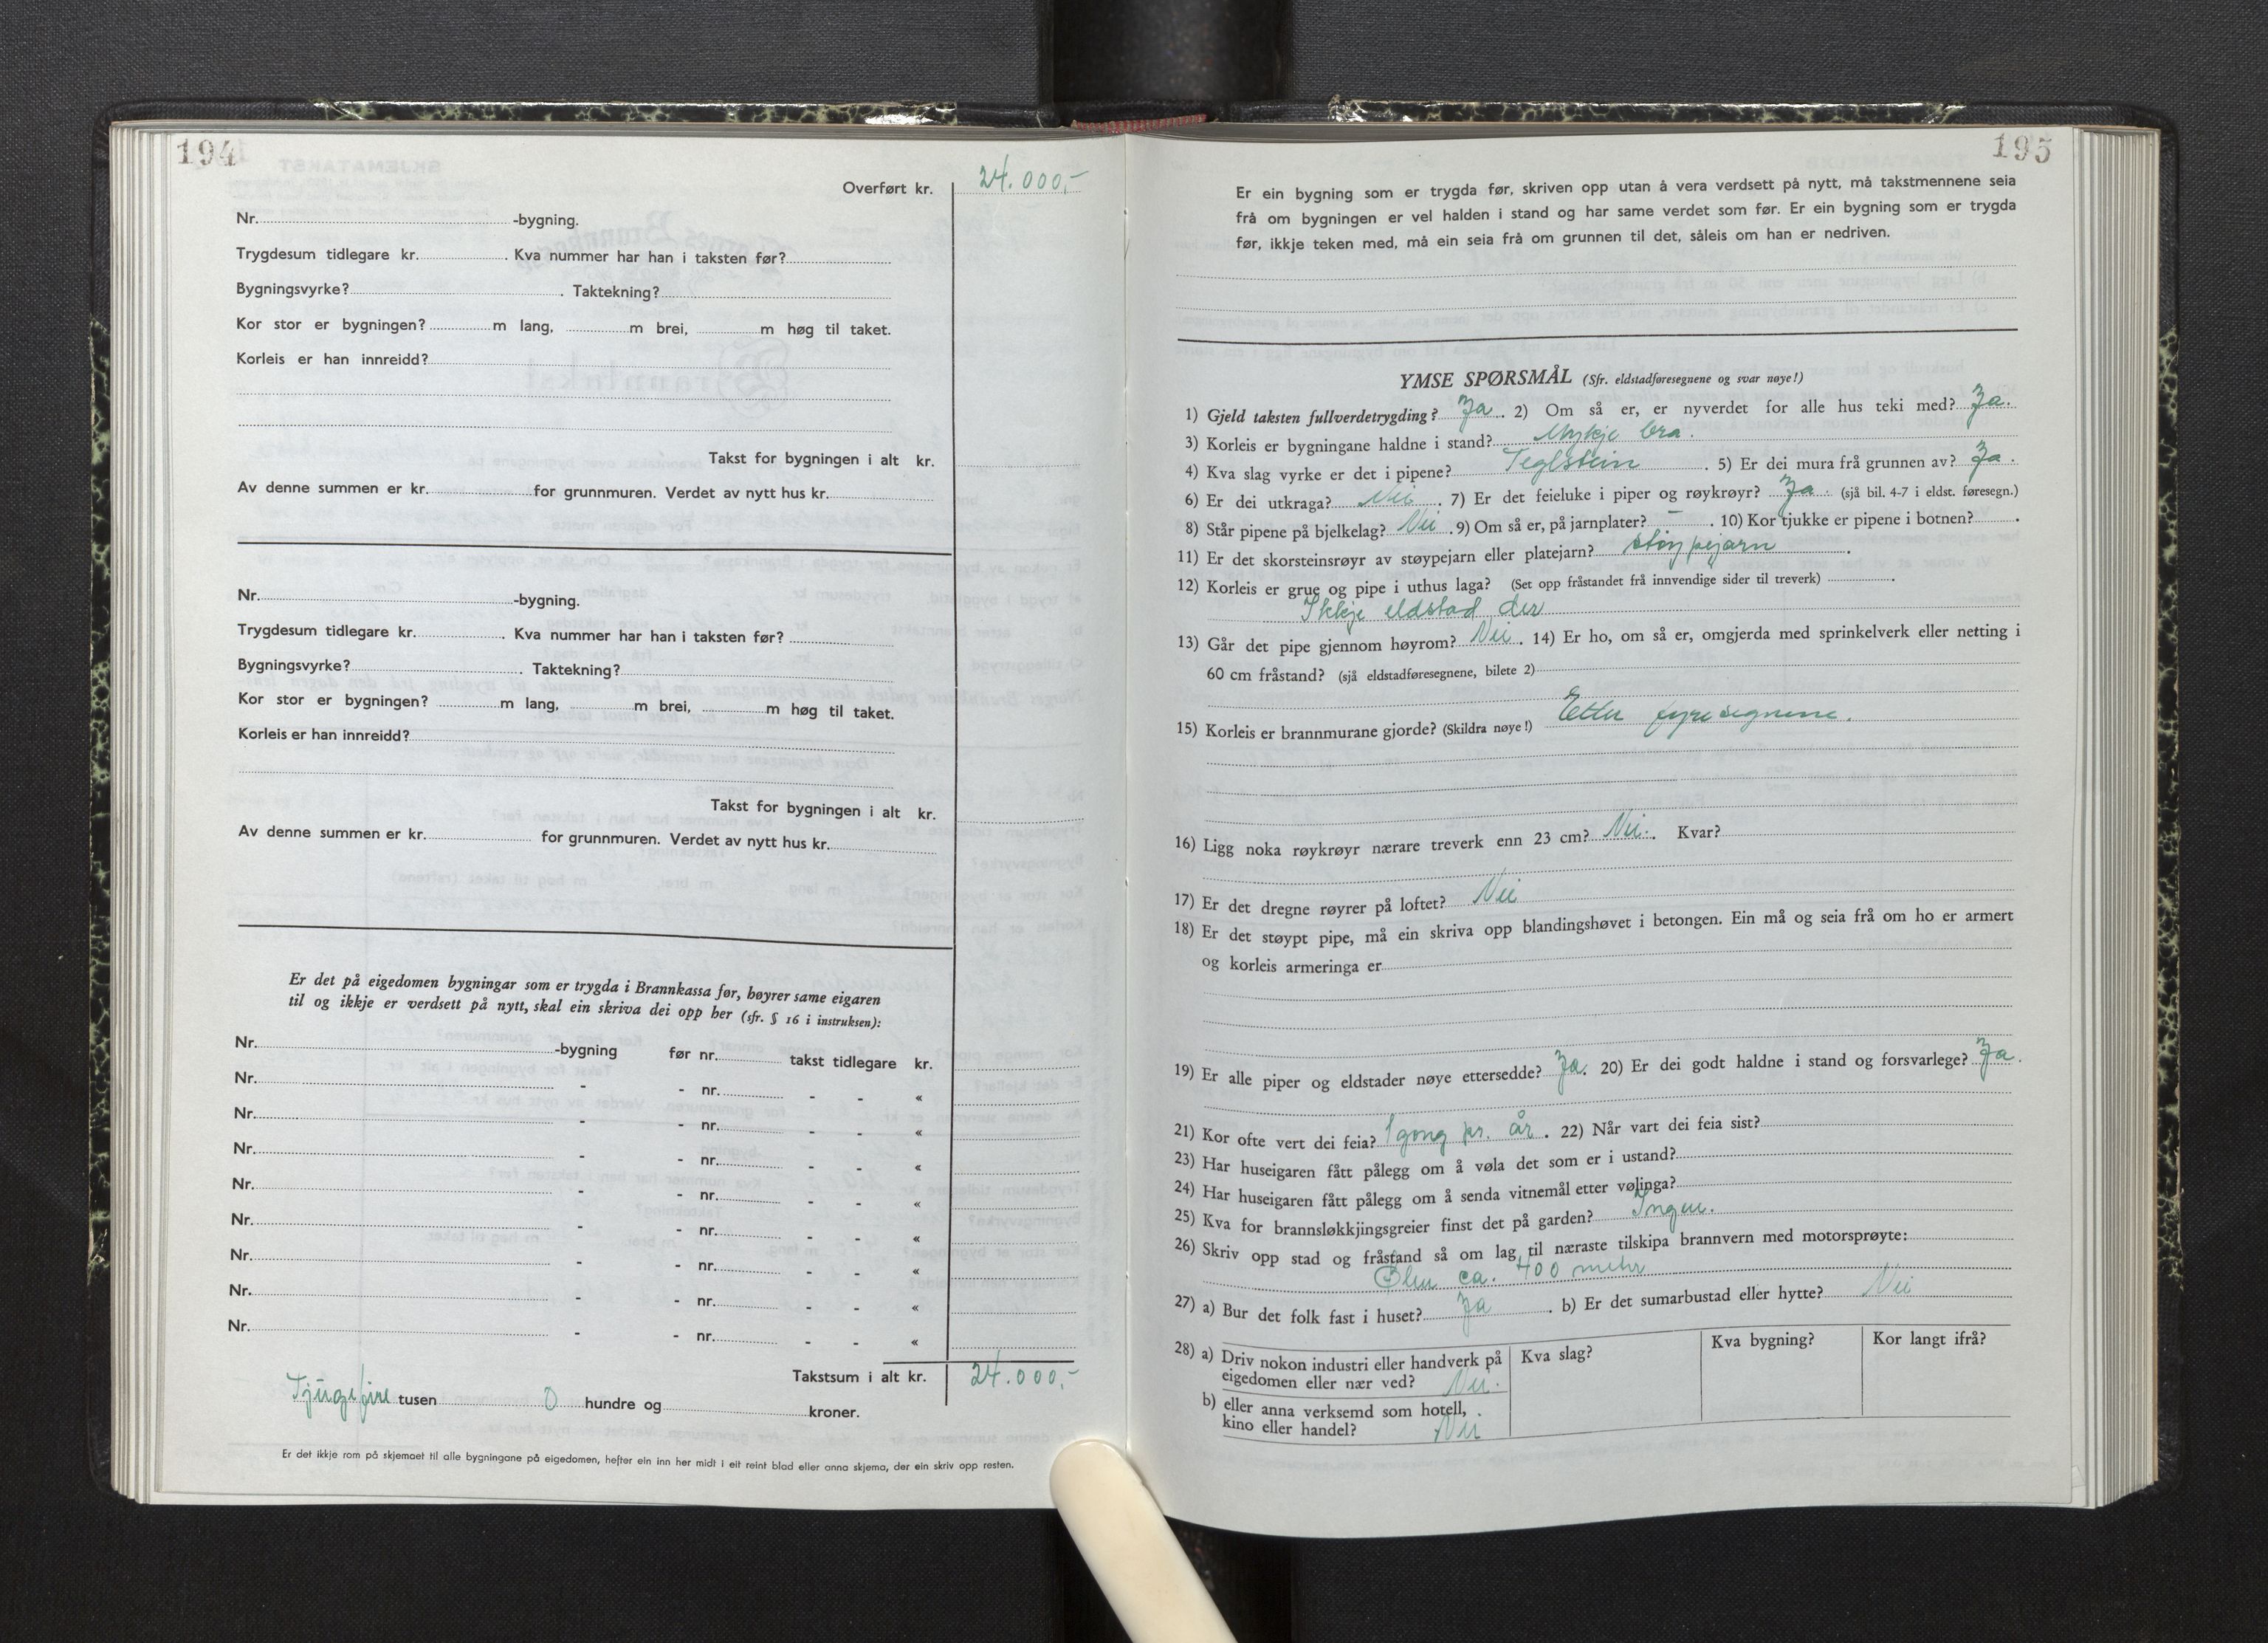 194
Overført kr. 24.000,-
Nr. -bygning.
Trygdesum tidlegare kr. . Kva nummer har han i taksten før?
Bygningsvyrke? . Taktekning?
Kor stor er bygningen? m lang, m brei, m høg til taket.
Korleis er han innreidd?
Takst for bygningen i alt kr.
Av denne summen er kr. for grunnmuren. Verdet av nytt hus kr.
Nr. -bygning.
Trygdesum tidlegare kr. . Kva nummer har han i taksten før?
Bygningsvyrke? . Taktekning?
Kor stor er bygningen? m lang, m brei, m høg til taket.
Korleis er han innreidd?
Takst for bygningen i alt kr.
Av denne summen er kr. for grunnmuren. Verdet av nytt hus kr.
Er det på eigedomen bygningar som er trygda i Brannkassa før, høyrer same eigaren
til og ikkje er verdsett på nytt, skal ein skriva dei opp her (sfr. § 16 i instruksen):
Nr. -bygning før nr. takst tidlegare kr.
Nr. - - nr. - - «
Nr. - - nr. - - «
Nr. - - nr. - - «
Nr. - - nr. - - «
Nr. - - nr. - - «
Nr. - - nr. - - «
Nr. - - nr. - - «
Nr. - - nr. - - «
Takstsum i alt kr. 24.000,-
Tjugefire tusen 0 hundre og kroner.
Er det ikkje rom på skjemaet til alle bygningane på eigedomen, hefter ein inn her midt i eit reint blad eller anna skjema, der ein skriv opp resten.
195
Er ein bygning som er trygda før, skriven opp utan å vera verdsett på nytt, må takstmennene seia
frå om bygningen er vel halden i stand og har same verdet som før. Er ein bygning som er trygda
før, ikkje teken med, må ein seia frå om grunnen til det, såleis om han er nedriven.
YMSE SPØRSMÅL (Sfr. eldstadføresegnene og svar nøye!)
1) Gjeld taksten fullverdetrygding? Ja. 2) Om så er, er nyverdet for alle hus teki med? Ja.
3) Korleis er bygningane haldne i stand? Mykje bra.
4) Kva slag vyrke er det i pipene? Teglstein . 5) Er dei mura frå grunnen av? Ja.
6) Er dei utkraga? Nei . 7) Er det feieluke i piper og røykrøyr? Ja. (sjå bil. 4-7 i eldst. føresegn.)
8) Står pipene på bjelkelag? Nei . 9) Om så er, på jarnplater? - . 10) Kor tjukke er pipene i botnen? .
11) Er det skorsteinsrøyr av støypejarn eller platejarn? støypejarn .
12) Korleis er grue og pipe i uthus laga? (Set opp fråstandet frå innvendige sider til treverk) .
Ikkje eldstad der
13) Går det pipe gjennom høyrom? Nei . 14) Er ho, om så er, omgjerda med sprinkelverk eller netting i
60 cm fråstand? (sjå eldstadføresegnene, bilete 2)
15) Korleis er brannmurane gjorde? (Skildra nøye!) Etter fyresegnene.
16) Ligg noka røykrøyr nærare treverk enn 23 cm? Nei. Kvar?
17) Er det dregne røyrer på loftet? Nei
18) Er det støypt pipe, må ein skriva opp blandingshøvet i betongen. Ein må og seia frå om ho er armert
og korleis armeringa er
19) Er alle piper og eldstader nøye ettersedde? Ja. 20) Er dei godt haldne i stand og forsvarlege? Ja.
21) Kor ofte vert dei feia? 1 gong pr. år . 22) Når vart dei feia sist?
23) Har huseigaren fått pålegg om å vøla det som er i ustand?
24) Har huseigaren fått pålegg om å senda vitnemål etter vølinga?
25) Kva for brannsløkkjingsgreier finst det på garden? Ingen.
26) Skriv opp stad og fråstand så om lag til næraste tilskipa brannvern med motorsprøyte:
ca. 400 meter
27) a) Bur det folk fast i huset? Ja . b) Er det sumarbustad eller hytte? Nei
28) a) Driv nokon industri eller handverk på
eigedomen eller nær ved? Nei.
Kva slag?
Kva bygning?
Kor langt ifrå?
b) eller anna verksemd som hotell,
kino eller handel? Nei